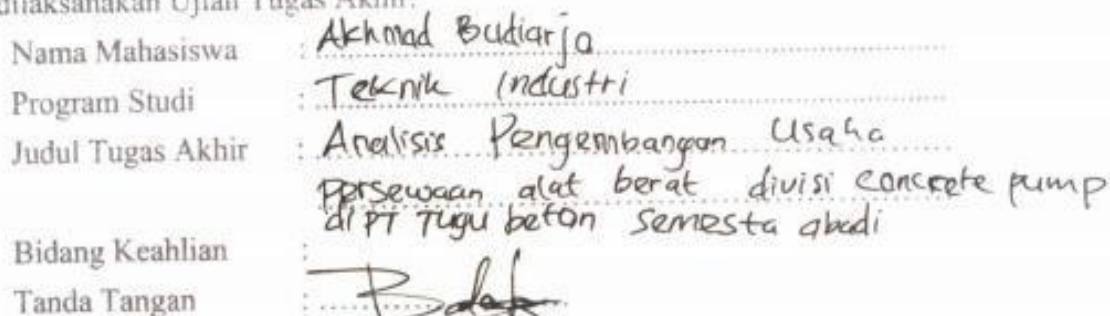 dilaksanakan Ujian Tugas Akhir.
Nama Mahasiswa : Akhmad Budiarjo
Program Studi : Teknik Industri
Judul Tugas Akhir : Analisis Pengembangan Usaha
persewaan alat berat divisi concrete pump
di PT Tugu beton semesta abadi
Bidang Keahlian :
Tanda Tangan :